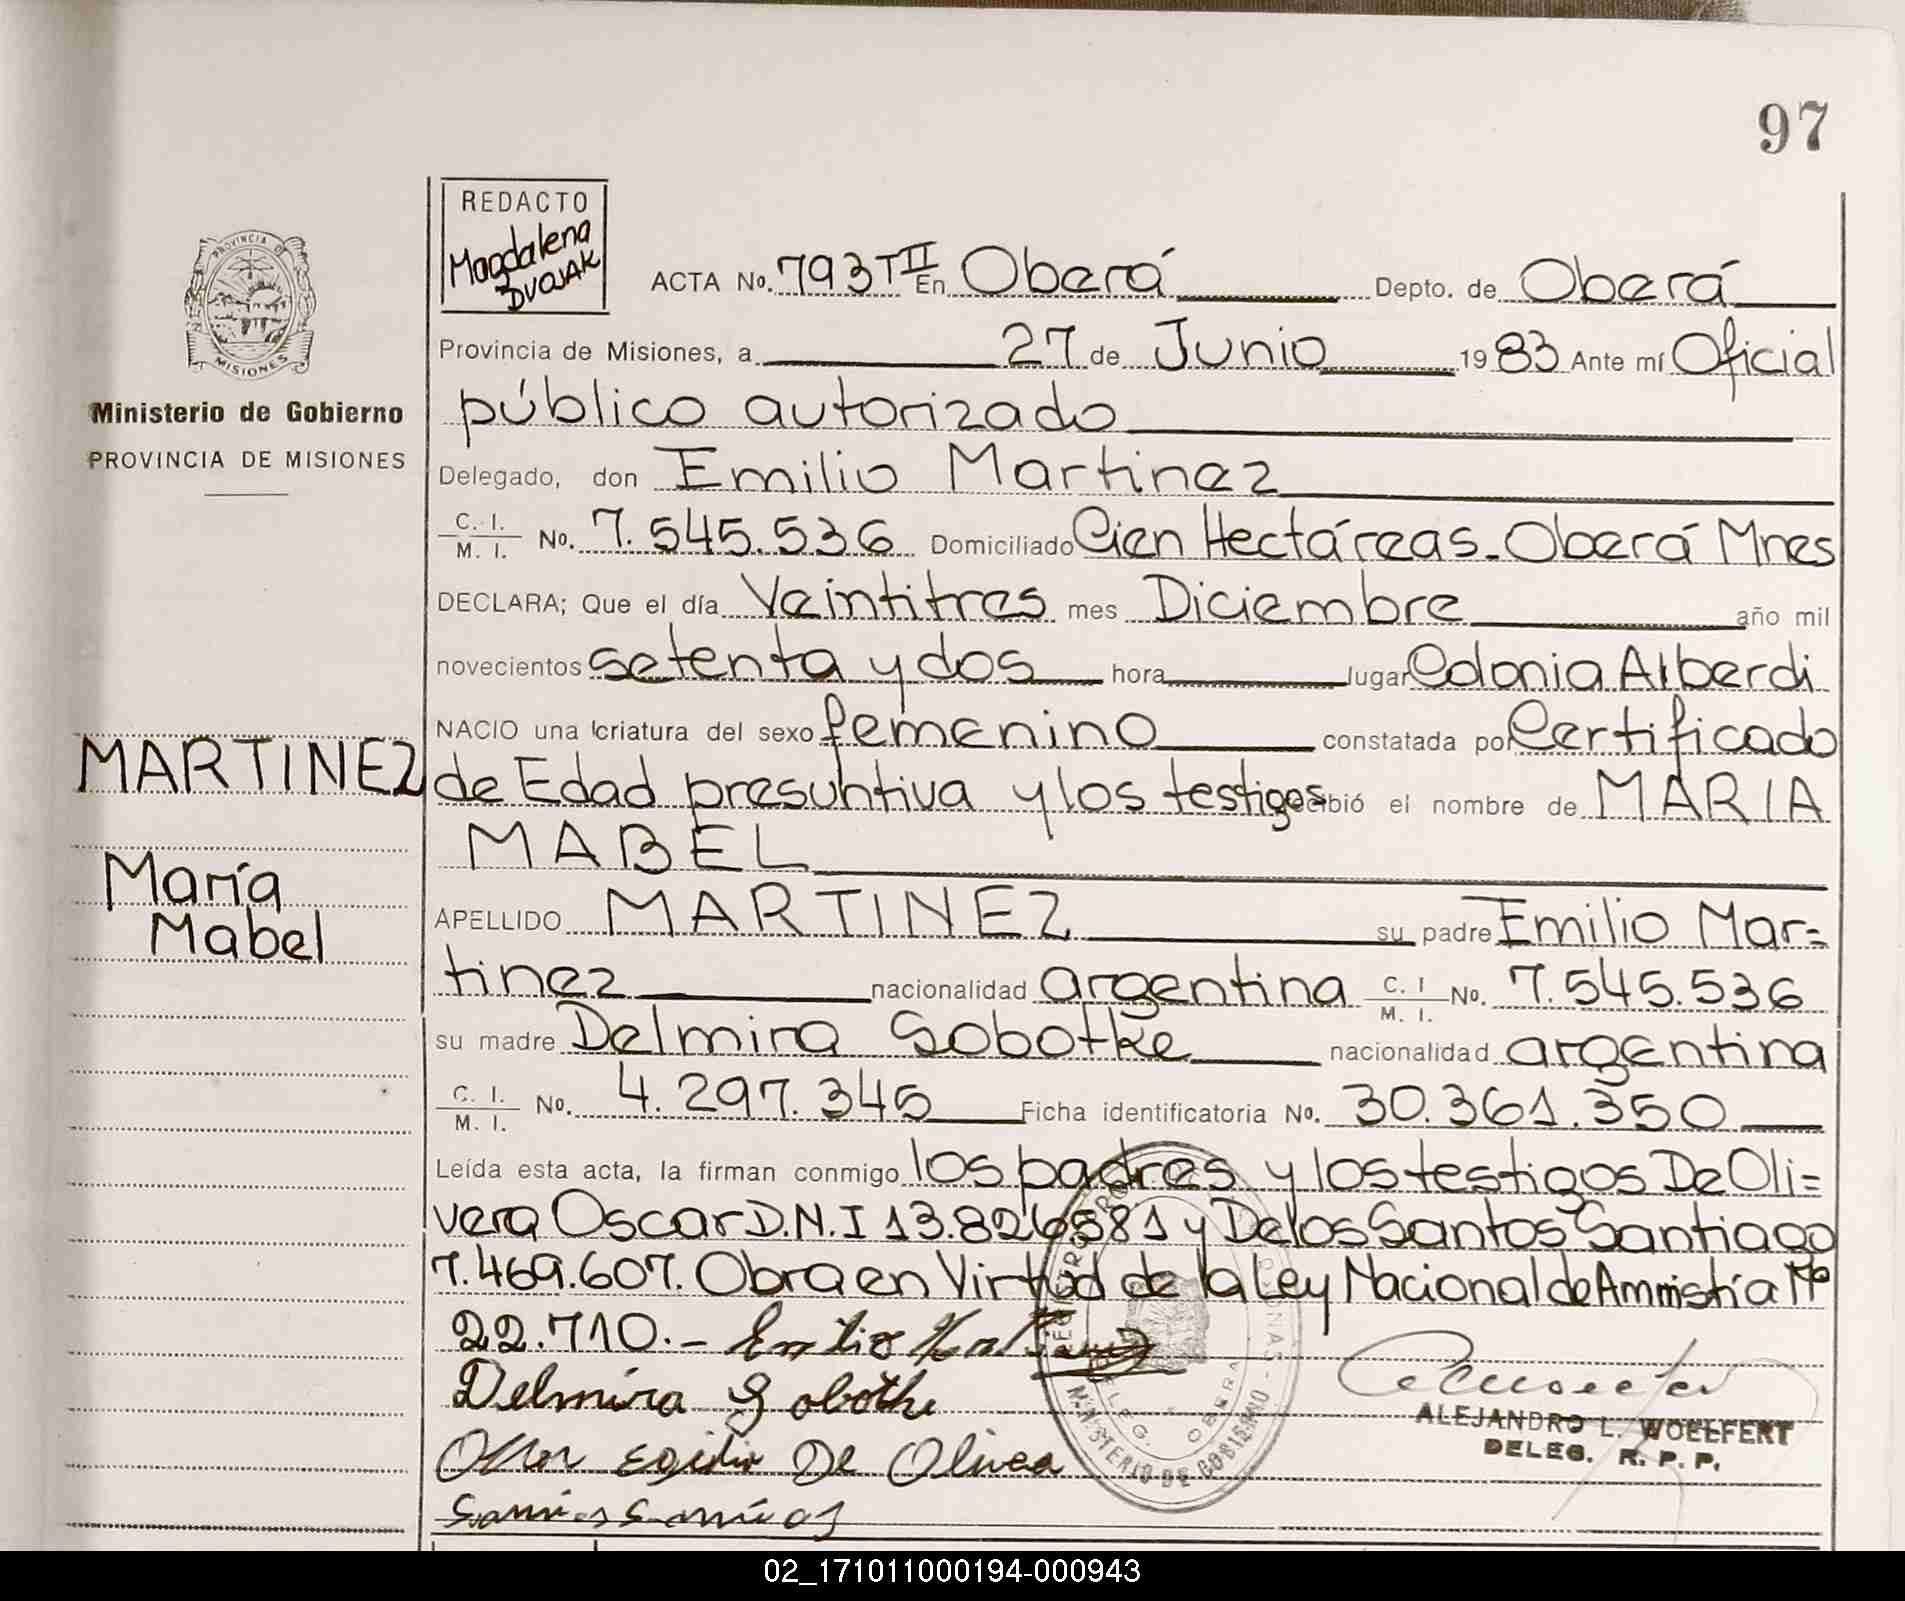 97
REDACTO
Magdalena
DVOJAK
PROVINCIA DE
MISIONES
Ministerio de Gobierno
PROVINCIA DE MISIONES
ACTA No. 793 TII En Oberá Depto. de Oberá
Provincia de Misiones, a 27 de Junio 1983 Ante mí Oficial
público autorizado
Delegado, don Emilio Martinez
C. I. / M. I. No. 7.545.536 Domiciliado Cien Hectáreas - Oberá Mnes
DECLARA; Que el día Veintitres mes Diciembre año mil
novecientos setenta y dos hora lugar Colonia Alberdi
NACIO una criatura del sexo femenino constatada por Certificado
MARTINEZ
de Edad presuntiva y los testigos recibió el nombre de MARIA
MABEL
María
Mabel
APELLIDO MARTINEZ su padre Emilio Mar=
tinez nacionalidad argentina C. I / M. I. No. 7.545.536
su madre Delmira Sobotke nacionalidad argentina
C. I. / M. I. No. 4.297.345 Ficha identificatoria No. 30.361.350
Leída esta acta, la firman conmigo los padres y los testigos De Oli=
vera Oscar D.N.I 13.826581 y De los Santos Santiago
7.469.607. Obra en Virtud de la Ley Nacional de Ammistía Nº
22.710.- Emilio Martinez
Delmira Sobothe
Egidio De Olivea
MINISTERIO DE GOBIERNO
DELEG. OBERA
ALEJANDRO L. WOELFERT
DELEG. R. P. P.
02_171011000194-000943